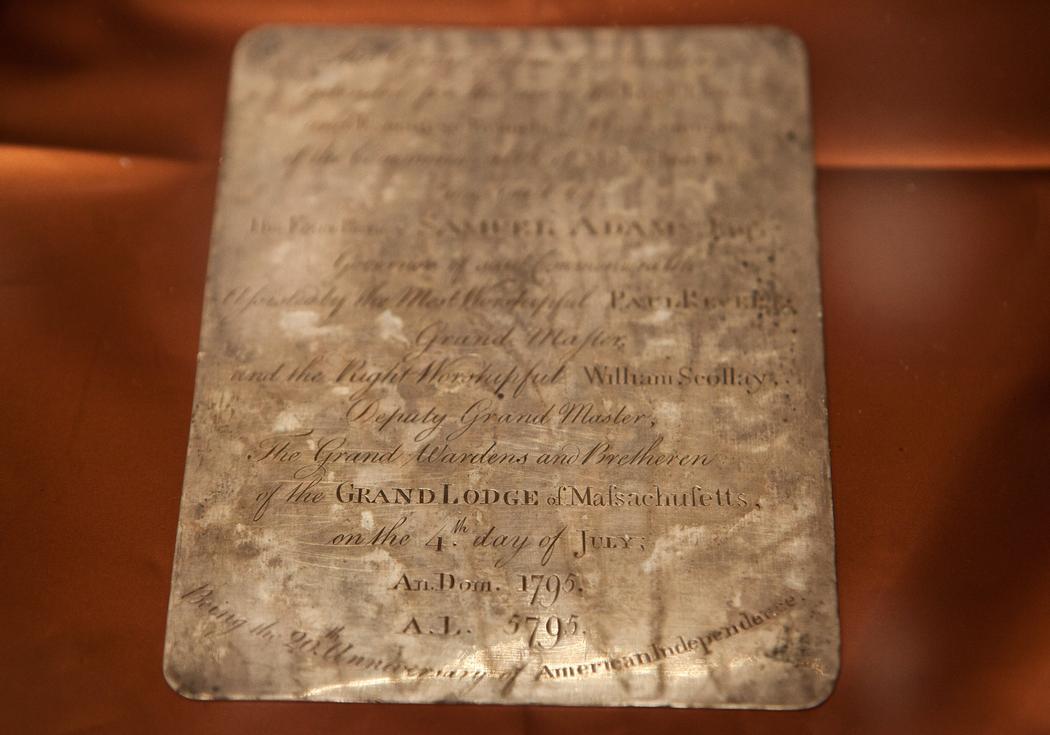 intended for the use of the
of the Commonwealth of Massachusetts
SAMUEL ADAMS, Esq.
Governor of said Commonwealth
Aſsisted by the Most Worshipful PAUL REVERE,
Grand Maſter,
and the Right Worshipful William Scollay,
Deputy Grand Master,
The Grand Wardens and Bretheren
of the GRAND LODGE of Maſsachuſetts,
on the 4.th day of JULY;
An. Dom. 1795.
A.L. 5795.
Being the 20th Anniversary of American Independence.